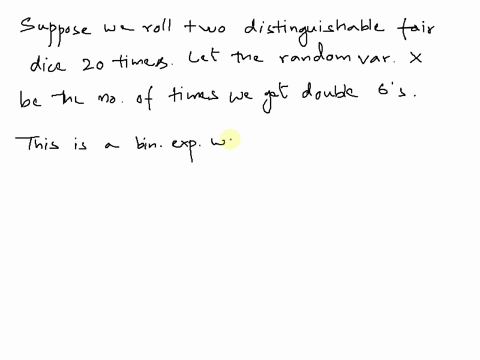 Suppose we roll two distinguishable fair
dice 20 times. Let the random var. X
be the no. of times we get double 6's.
This is a bin. exp. w